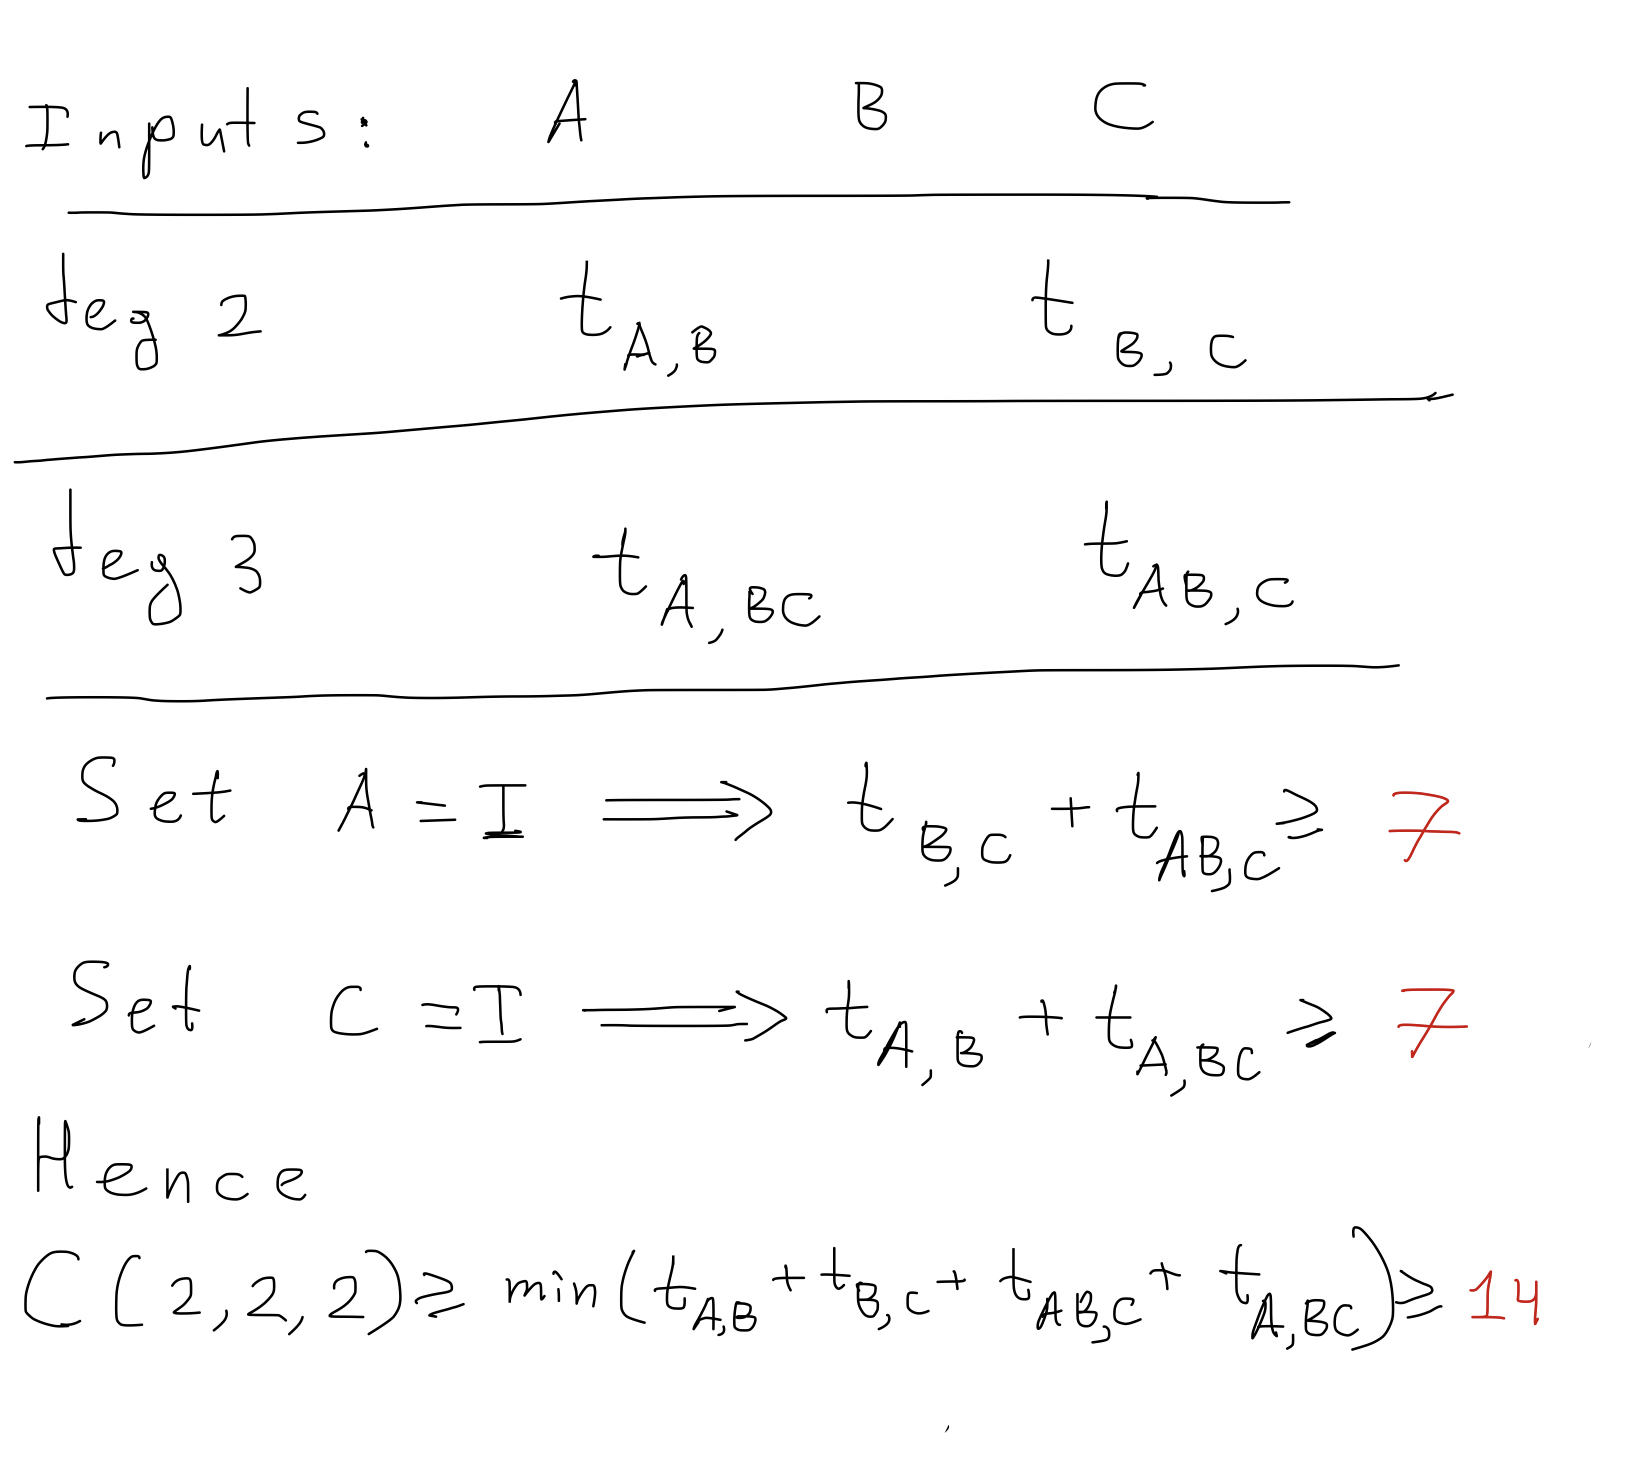 Inputs: A B C
deg 2 t_{A,B} t_{B,C}
deg 3 t_{A,BC} t_{AB,C}
Set A = I ⟹ t_{B,C} + t_{AB,C} ⩾ 7
Set C = I ⟹ t_{A,B} + t_{A,BC} ⩾ 7
Hence
C(2,2,2) ⩾ min(t_{A,B} + t_{B,C} + t_{AB,C} + t_{A,BC}) ⩾ 14